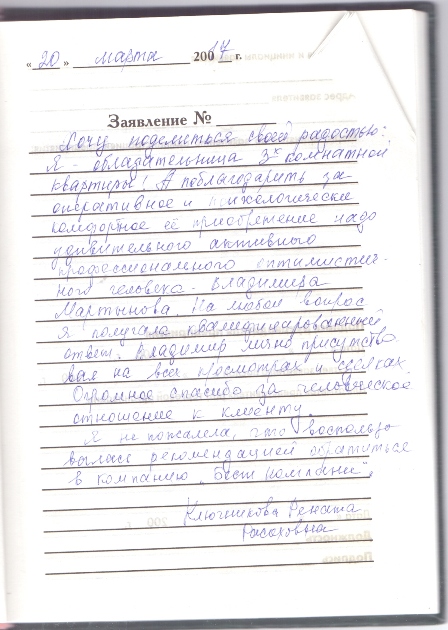 «20» марта 2007 г.
Заявление №
Хочу поделиться своей радостью:
Я - обладательница 3х комнатной
квартиры! А поблагодарить за
оперативное и психологически
комфортное её приобретение надо
удивительного активного
профессионального оптимистич-
ного человека - Владимира
Мартынова. На любой вопрос
я получала квалифицированный
ответ. Владимир лично присутство
вал на всех просмотрах и сделках.
Огромное спасибо за человеческое
отношение к клиенту.
Я не пожалела, что воспользо
вылась рекомендацией обратиться
в компанию „Бест компани".
Ключникова Рената